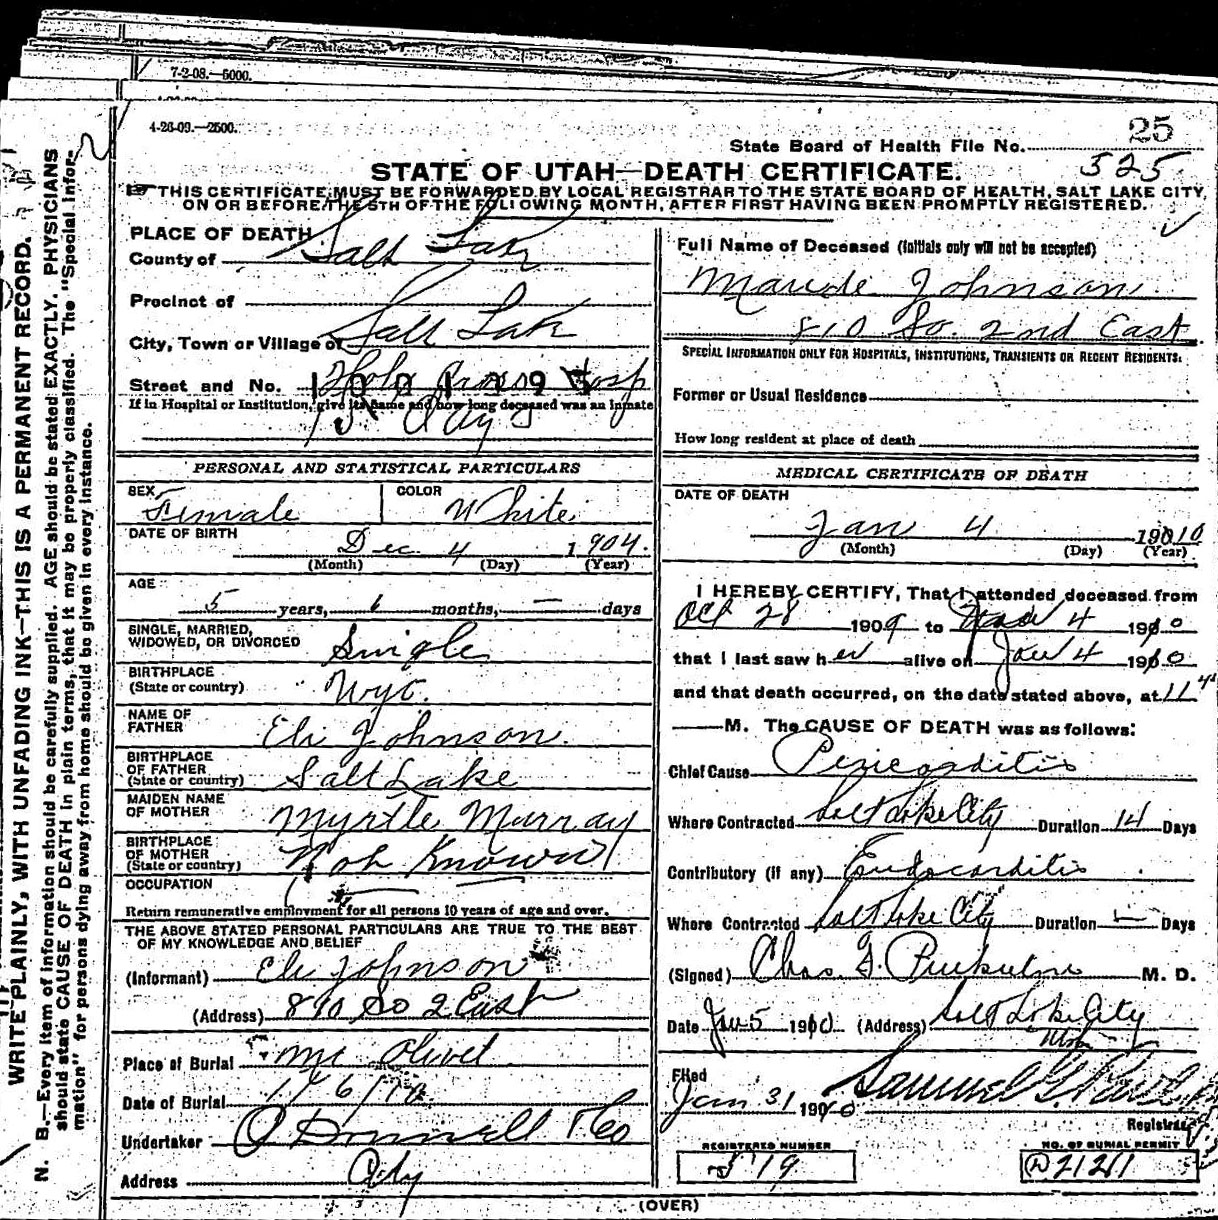 7-2-08.—5000.
4-26-09.—2500.
25
State Board of Health File No. 325
STATE OF UTAH—DEATH CERTIFICATE.
THIS CERTIFICATE MUST BE FORWARDED BY LOCAL REGISTRAR TO THE STATE BOARD OF HEALTH, SALT LAKE CITY,
ON OR BEFORE THE 5TH OF THE FOLLOWING MONTH, AFTER FIRST HAVING BEEN PROMPTLY REGISTERED.
WRITE PLAINLY, WITH UNFADING INK—THIS IS A PERMANENT RECORD.
N. B.—Every item of information should be carefully supplied. AGE should be stated EXACTLY. PHYSICIANS
should state CAUSE OF DEATH in plain terms, that it may be properly classified. The "Special Infor-
mation" for persons dying away from home should be given in every instance.
PLACE OF DEATH
County of Salt Lake
Precinct of
City, Town or Village of Salt Lake
Street and No. Holy Cross Hosp
If in Hospital or Institution, give its name and how long deceased was an inmate
Days
PERSONAL AND STATISTICAL PARTICULARS
SEX Female
COLOR White
DATE OF BIRTH Dec. 4 1904.
(Month) (Day) (Year)
AGE 5 years, 6 months, — days
SINGLE, MARRIED,
WIDOWED, OR DIVORCED Single
BIRTHPLACE
(State or country) Wyo.
NAME OF
FATHER Eli Johnson.
BIRTHPLACE
OF FATHER
(State or country) Salt Lake
MAIDEN NAME
OF MOTHER Myrtle Murray
BIRTHPLACE
OF MOTHER
(State or country) Not Known
OCCUPATION
Return remunerative employment for all persons 10 years of age and over.
THE ABOVE STATED PERSONAL PARTICULARS ARE TRUE TO THE BEST
OF MY KNOWLEDGE AND BELIEF
(Informant) Eli Johnson
(Address) 810 So 2 East
Place of Burial Mt Olivet
Date of Burial 1/6/10
Undertaker O'Donnell & Co
Address City
Full Name of Deceased (Initials only will not be accepted)
Maude Johnson
810 So. 2nd East
SPECIAL INFORMATION ONLY FOR HOSPITALS, INSTITUTIONS, TRANSIENTS OR RECENT RESIDENTS.
Former or Usual Residence
How long resident at place of death
MEDICAL CERTIFICATE OF DEATH
DATE OF DEATH
Jan 4 1910
(Month) (Day) (Year)
I HEREBY CERTIFY, That I attended deceased from
Oct 28 1909 to Jan 4 1910
that I last saw her alive on Jan 4 1910
and that death occurred, on the date stated above, at 11
M. The CAUSE OF DEATH was as follows:
Chief Cause Pericarditis
Where Contracted Salt Lake City Duration 14 Days
Contributory (if any) Endocarditis
Where Contracted Salt Lake City Duration — Days
(Signed) Chas. G. M. D.
Date Jan 5 1910 (Address) Salt Lake City
Utah
Filed
Jan 31 1910 Samuel G. Paul
Registrar
REGISTERED NUMBER
NO. OF BURIAL PERMIT
19
D2121
(OVER)